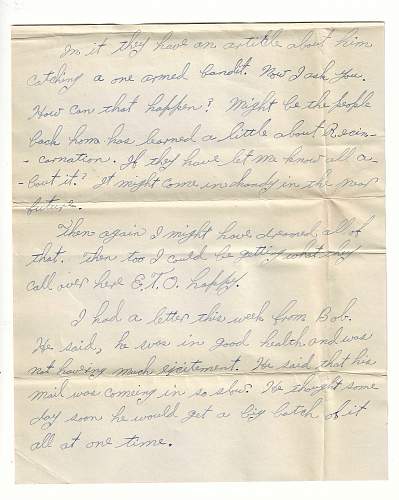 In it they have an artible about him
catching a one armed bandit. Now I ask you.
How can that happen? Might be the people
back home has learned a little about Rein-
- carnation. If they have let me know all a-
- bout it? It might come in handy in the near
future.
Then again I might have dreamed all of
that. Then too I could be getting what they
call over here E.T.O. happy.
I had a letter this week from Bob.
He said, he was in good health and was
not having much excitement. He said that his
mail was comeing in so slow. He thought some
day soon he would get a big batch of it
all at one time.